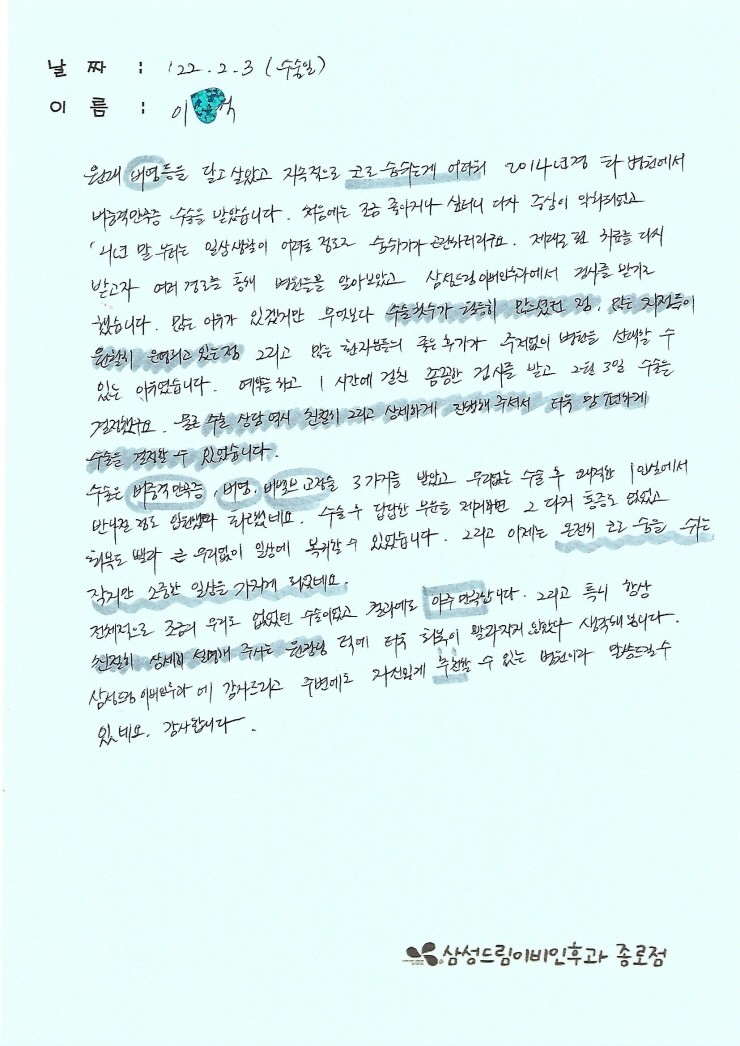 날 짜 : '22. 2. 3 (수술일)
이 름 : 이 석
원래 비염등을 달고 살았고 지속적으로 코로 숨쉬는게 어려워 2014년경 타 병원에서
비중격만곡증 수술을 받았습니다. 처음에는 조금 좋아지나 싶더니 다시 증상이 악화되었고
'21년 말 부터는 일상생활이 어려울 정도로 숨쉬기가 곤란하더라구요. 제대로 된 치료를 다시
받고자 여러 경로를 통해 병원들을 알아보았고 삼성드림이비인후과에서 검사를 받기로
했습니다. 많은 이유가 있겠지만 무엇보다 수술횟수가 월등히 많으셨던 점, 많은 지점들이
원활히 운영되고 있는점 그리고 많은 환자분들의 좋은 후기가 주저없이 병원을 선택할 수
있는 이유였습니다. 예약을 하고 1시간에 걸친 꼼꼼한 검사를 받고 2월 3일 수술을
결정했구요. 물론 수술 상담 역시 친절히 그리고 상세하게 진행해 주셔서 더욱 맘 편하게
수술을 결정할 수 있었습니다.
수술은 비중격만곡증, 비염, 비밸브 고정술 3가지를 받았고 무리없는 수술 후 쾌적한 1인실에서
반나절 정도 입원했다 퇴원했네요. 수술 후 답답한 부분을 제외하면 그 다지 통증도 없었고
회복도 빨라 큰 무리없이 일상에 복귀할 수 있었습니다. 그리고 이제는 온전히 코로 숨을 쉬는
작지만 소중한 일상을 가지게 되었네요.
전체적으로 조금의 무리도 없었던 수술이었고 결과에도 아주 만족합니다. 그리고 특히 항상
친절히 상세히 설명해 주시는 원장님 덕에 더욱 회복이 빨라지지 않았나 생각해 봅니다.
삼성드림 이비인후과 에 감사드리고 주변에도 자신있게 추천할 수 있는 병원이라 말씀드릴 수
있네요. 감사합니다.
삼성드림이비인후과 종로점